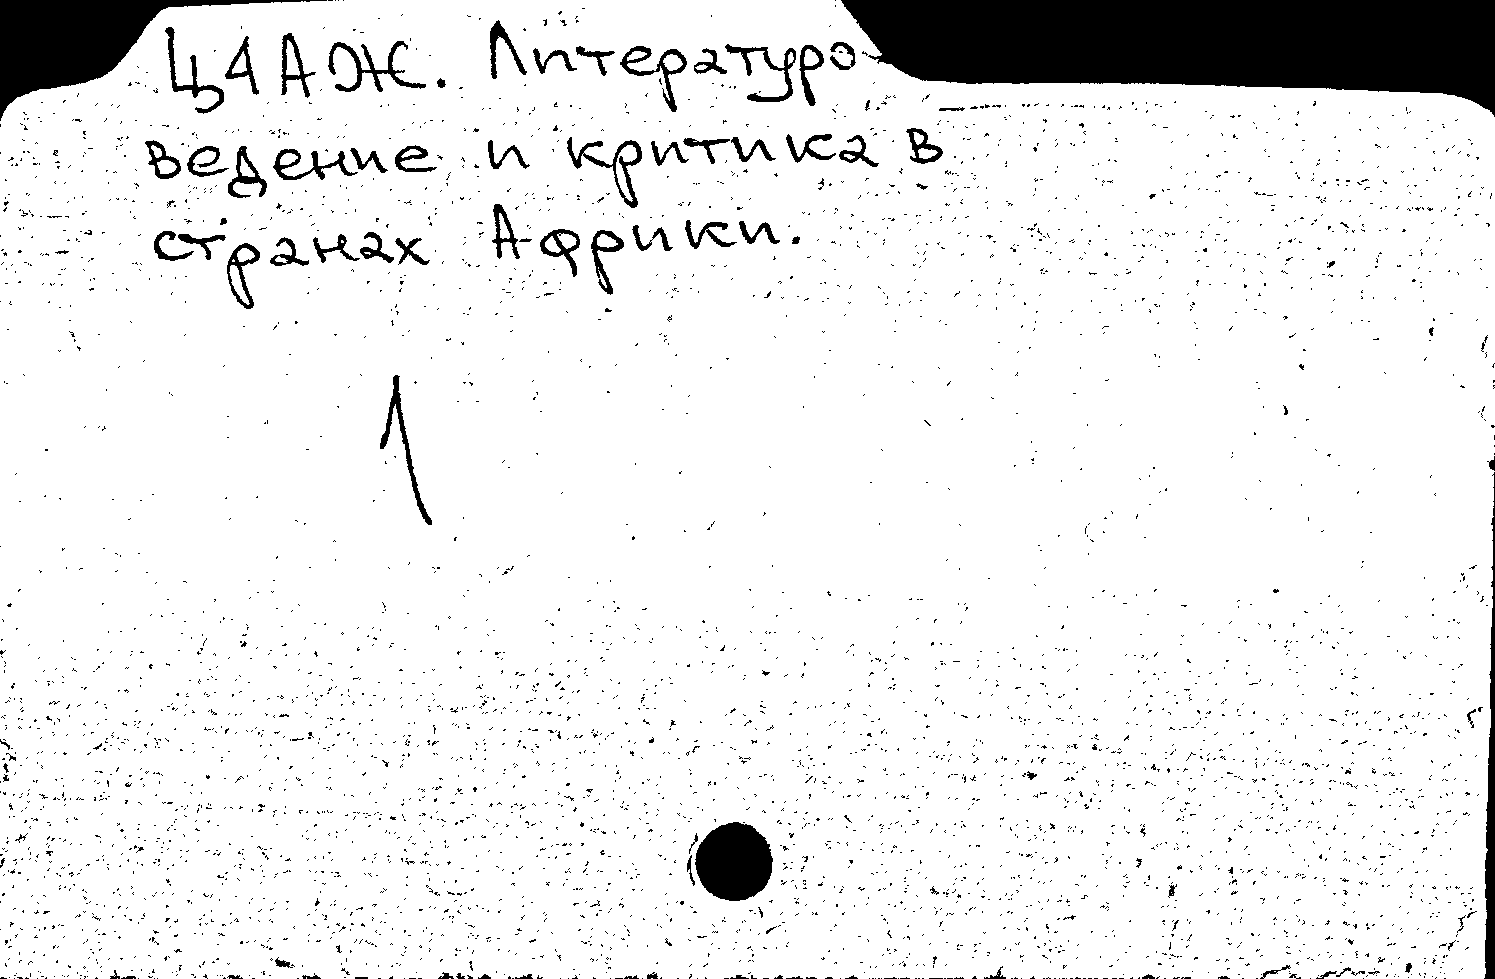 Ц4АЖ. Литературо-
ведение и критика в
странах Африки.
1